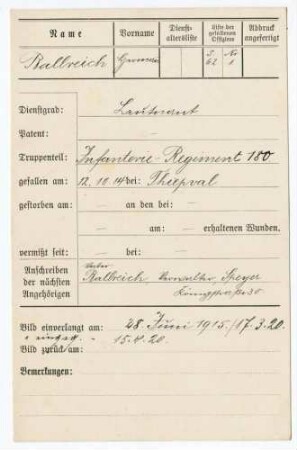 Name Vorname Dienstaltersliste Liste der gefallenen Offiziere Abdruck angefertigt
S. No
62 1
Ballreich German
Dienstgrad: Leutnant
Patent: —
Truppenteil: Infanterie-Regiment 180
gefallen am: 12.10.14 bei: Thiepval
gestorben am: — an den bei: —
— am: — erhaltenen Wunden.
vermißt seit: — bei: —
Vater
Anschreiben der nächsten Angehörigen Ballreich, Verwalter, Speyer
Königstraße 30
Bild einverlangt am: 28. Juni 1915./17.3.20.
" eingeg. " 15.4.20.
Bild zurück am:
Bemerkungen: